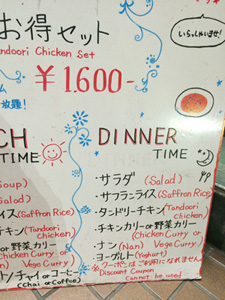 お得セット
いらっしゃいませ!
andoori Chicken Set
¥1.600-
放題!
CH
TIME
DINNER
TIME
Soup)
・サラダ (Salad)
(Salad)
・サフランライス (Saffron Rice)
イス (Saffron Rice)
・タンドリーチキン (Tandoori chicken)
チキン (Tandoori
chicken)
・チキンカリー or 野菜カリー
or 野菜カリー
(Chicken Curry or
Curry or
Vege Curry)
Vege Curry)
・ナン (Nan)
・ヨーグルト (Yoghurt)
チャイ or コーヒー
(Chai or Coffee)
※クーポンはご利用になれません
Discount Coupon
Cannot be used